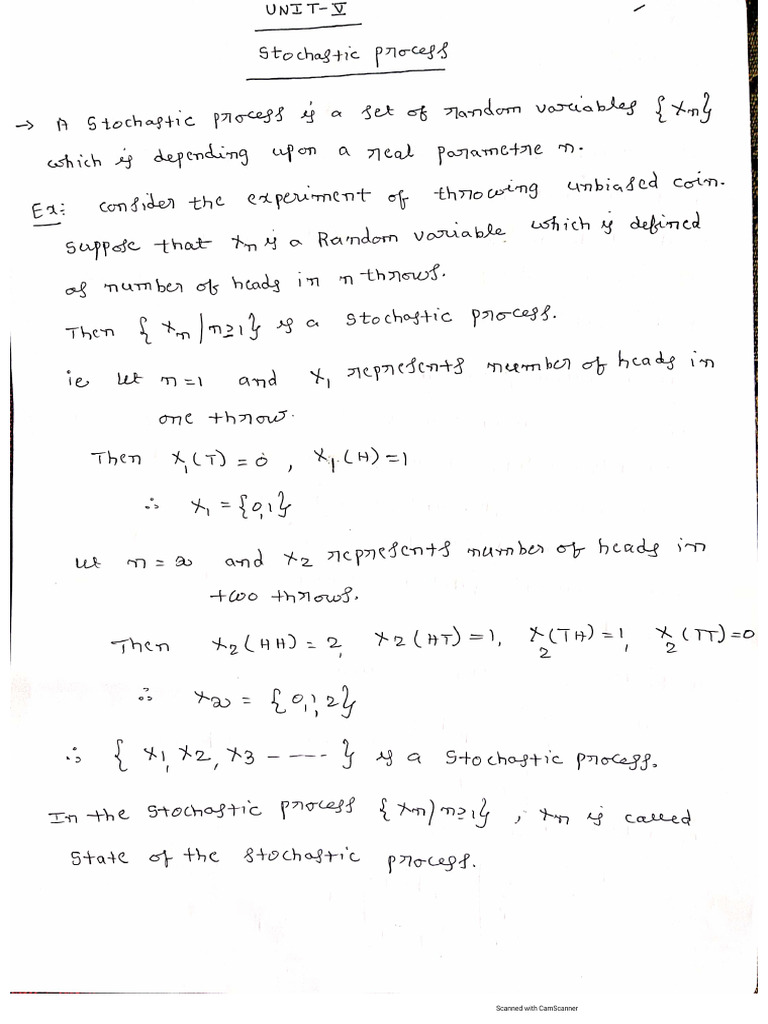 UNIT-V
Stochastic process
→ A Stochastic process is a set of random variables {Xn}
which is depending upon a real parametre n.
Ex: consider the experiment of throwing unbiased coin.
Suppose that Xn is a Random variable which is defined
as number of heads in n throws.
Then {Xn/n≥1} is a stochastic process.
ie let n=1 and X1 represents number of heads in
one throw.
Then X1(T) = 0, X1(H) = 1
∴ X1 = {0,1}
let n = 2 and X2 represents number of heads in
two throws.
Then X2(HH) = 2, X2(HT) = 1, X2(TH) = 1, X2(TT) = 0
∴ X2 = {0,1,2}
∴ {X1, X2, X3 - - - - -} is a Stochastic process.
In the stochastic process {Xn/n≥1}, Xn is called
State of the stochastic process.
Scanned with CamScanner